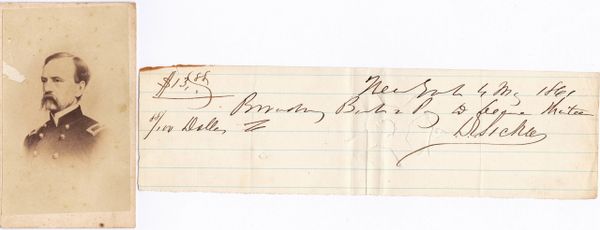 $13.88
New York 4 My 1861
Broadway Bank Pay to Segua thirteen
88/100 Dollars
D Sickles